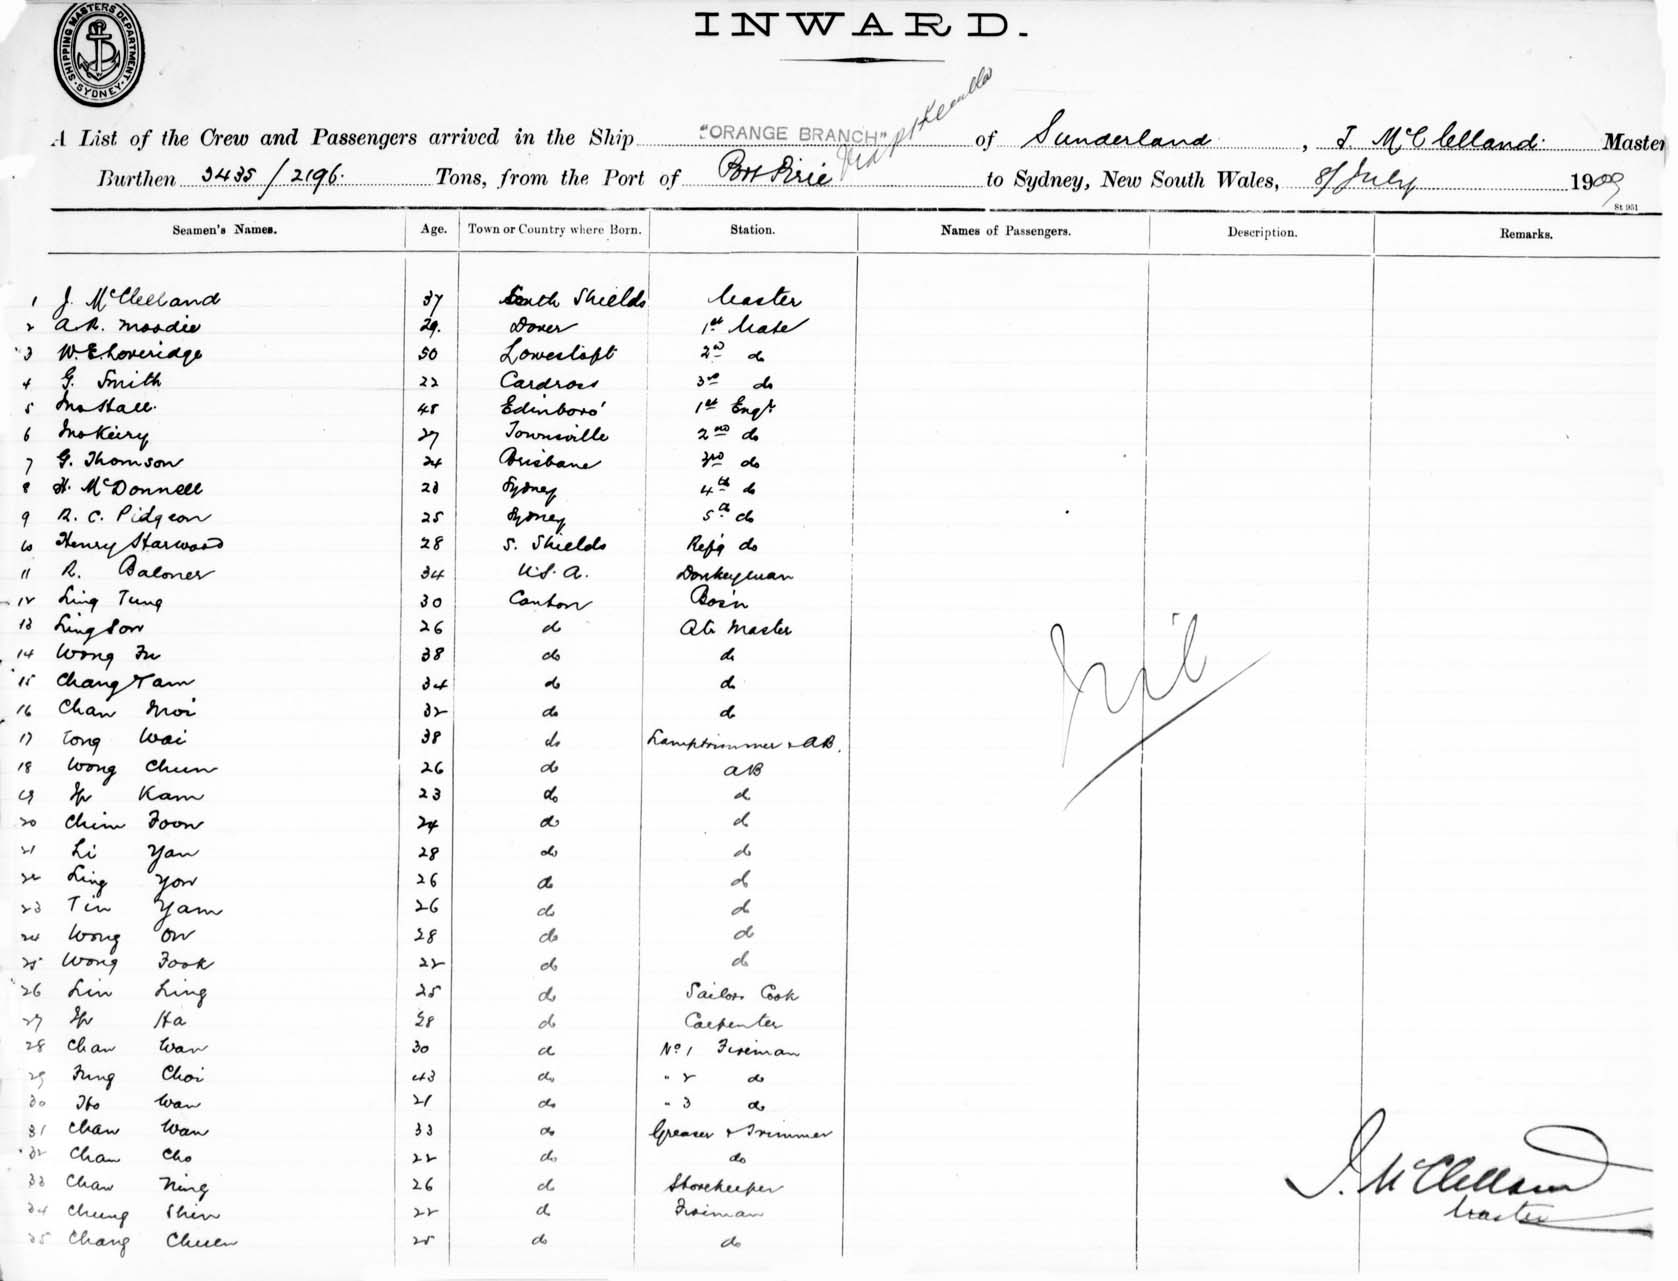 SHIPPING MASTERS DEPARTMENT. SYDNEY.
INWARD.
A List of the Crew and Passengers arrived in the Ship "ORANGE BRANCH" via Pt Kembla of Sunderland, J McClelland. Master
Burthen 3435/2196. Tons, from the Port of Port Pirie to Sydney, New South Wales, 8/July 1909
St 951
Seamen's Names. Age. Town or Country where Born. Station. Names of Passengers. Description. Remarks.
1 J. McClelland 37 South Shields Master
2 A.R. Moodie 29. Dover 1st Mate
3 W.E. Loveridge 50 Lowestoft 2nd do
4 G. Smith 22 Cardross 3rd do
5 Jno Hall. 45 Edinboro' 1st Engr
6 Jno Keiry 27 Townsville 2nd do
7 G. Thomson 24 Brisbane 3rd do
8 H. McDonnell 23 Sydney 4th do
9 R. C. Pidgeon 25 Sydney 5th do
10 Henry Harwood 28 S. Shields Refg do
11 R. Baloner 34 U.S.A. Donkeyman
12 Ling Tung 30 Canton Bos'n
13 Ling Sow 26 do Qtr Master
14 Wong Fu 38 do do
15 Chang Tam 34 do do
16 Chan Moi 32 do do
17 Tong Wai 38 do Lamptrimmer & AB.
18 Wong Chun 26 do AB
19 Ip Kam 23 do do
20 Chim Foon 24 do do
21 Li Yan 28 do do
22 Ling Yow 26 do do
23 Tin Yam 26 do do
24 Wong On 28 do do
25 Wong Fook 22 do do
26 Lin Ling 25 do Sailors Cook
27 Ip Ha 28 do Carpenter
28 Chan Wan 30 do No 1 Fireman
29 Fung Choi 43 do " 2 do
30 Ho Wan 21 do " 3 do
31 Chan Wan 33 do Greaser & Trimmer
32 Chan Cho 22 do do
33 Chan Ning 26 do Storekeeper
34 Chung Shin 22 do Fireman
35 Chang Chuen 25 do do
Nil
J. McClelland
Master